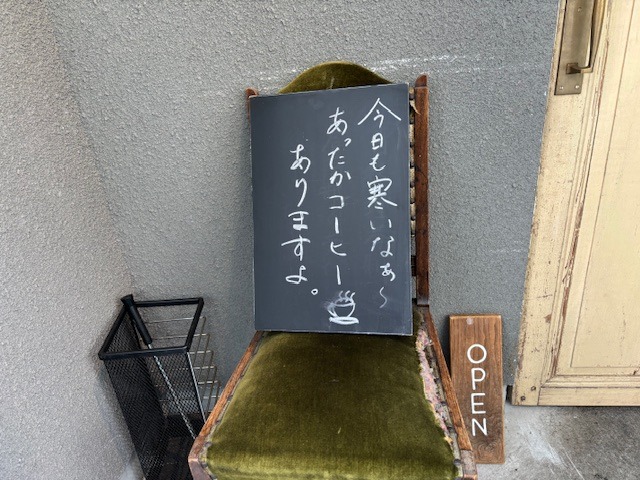 今日も寒いなぁ〜
あったかコーヒー
ありますよ。
OPEN